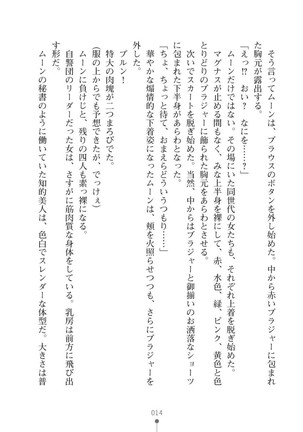 そう言ってムーンは、ブラウスのボタンを外し始めた。中から赤いブラジャーに包まれ
た胸元が露出する。
「えっ!?　おい？　なにを……」
ムーンだけではない。その場にいた同世代の女たちも、それぞれ上着を脱ぎ始めた。
マグナスが止める間もなく、みな上半身を裸にして、赤、水色、緑、ピンク、黄色と色
とりどりのブラジャーに飾られた胸元をあらわとする。
次いでスカートを脱ぎ始めた。当然、中からはブラジャーと御揃いのお洒落なショーツ
に包まれた下半身があらわとなる。
「ちょ、ちょっと待て、おまえらどういうつもり……」
華やかな煽情的な下着姿になったムーンは、頬を火照らせつつも、さらにブラジャーを
外した。
ブルン！
特大の肉塊が二つまろびでた。
（服の上からでも予想できたが、でっけぇ）
ムーンに負けじと、残りの四人も素っ裸になる。
自警団のリーダーだった女は、さすがに筋肉質な身体をしている。乳房は前方に飛び出
す形だ。
ムーンの秘書のように働いていた知的美人は、色白でスレンダーな体型だ。大きさは普
014